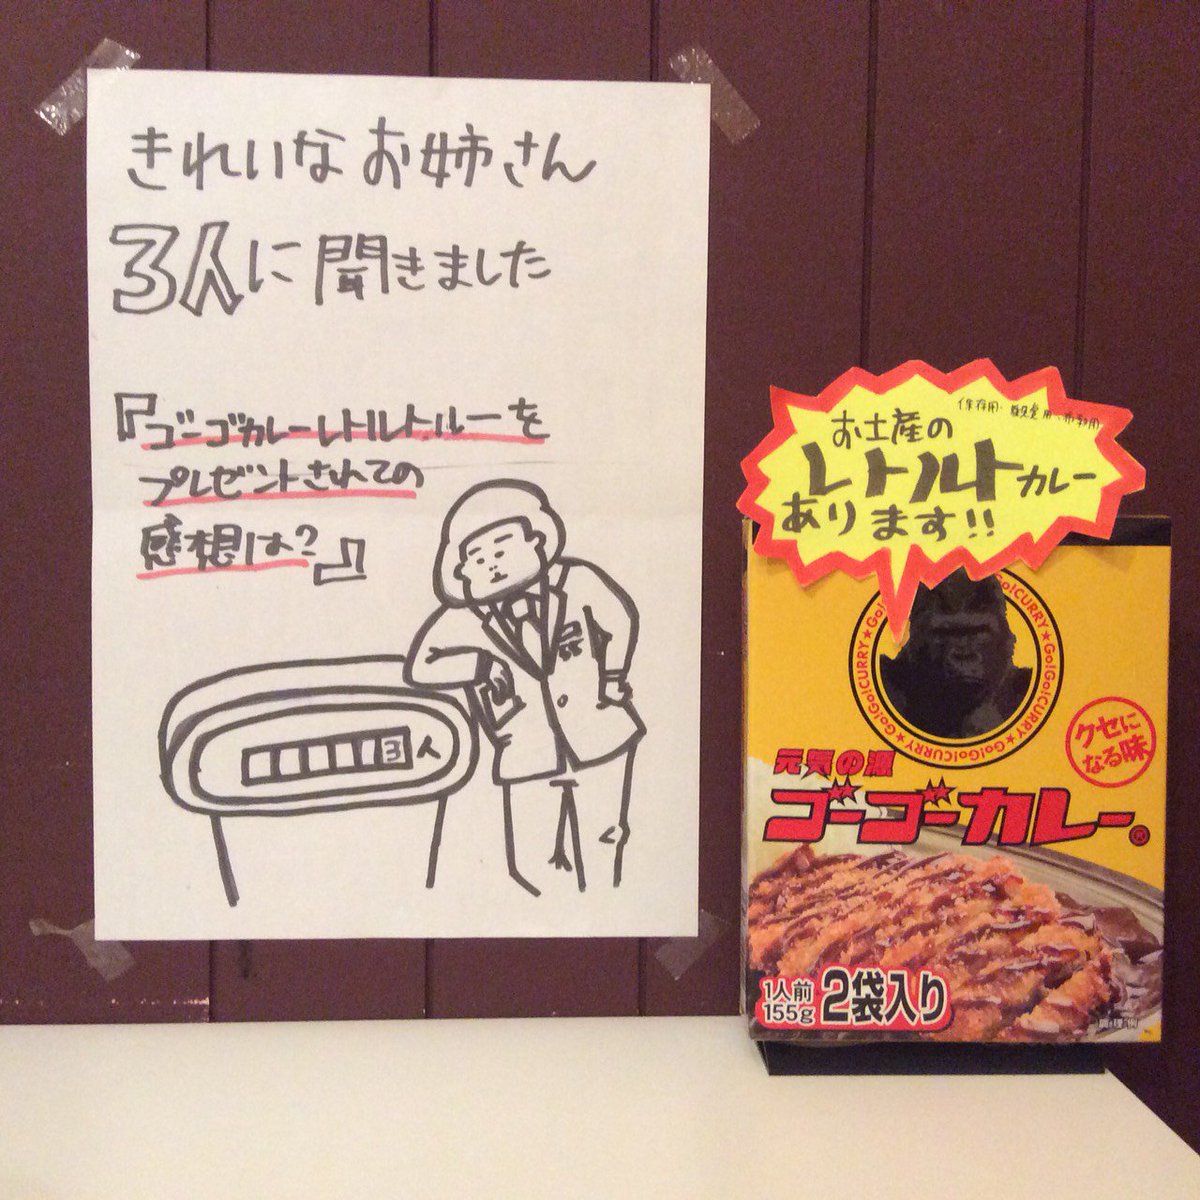 きれいなお姉さん
3人に聞きました
『ゴーゴーカレーレトルトルーを
プレゼントされての
感想は?』
3人
保存用・観賞用・布教用
お土産の
レトルトカレー
あります!!
Go!Go!CURRY★Go!Go!CURRY★Go!Go!CURRY★
クセに
なる味
元気の源
ゴーゴーカレー®
1人前
155g
2袋入り
調理例